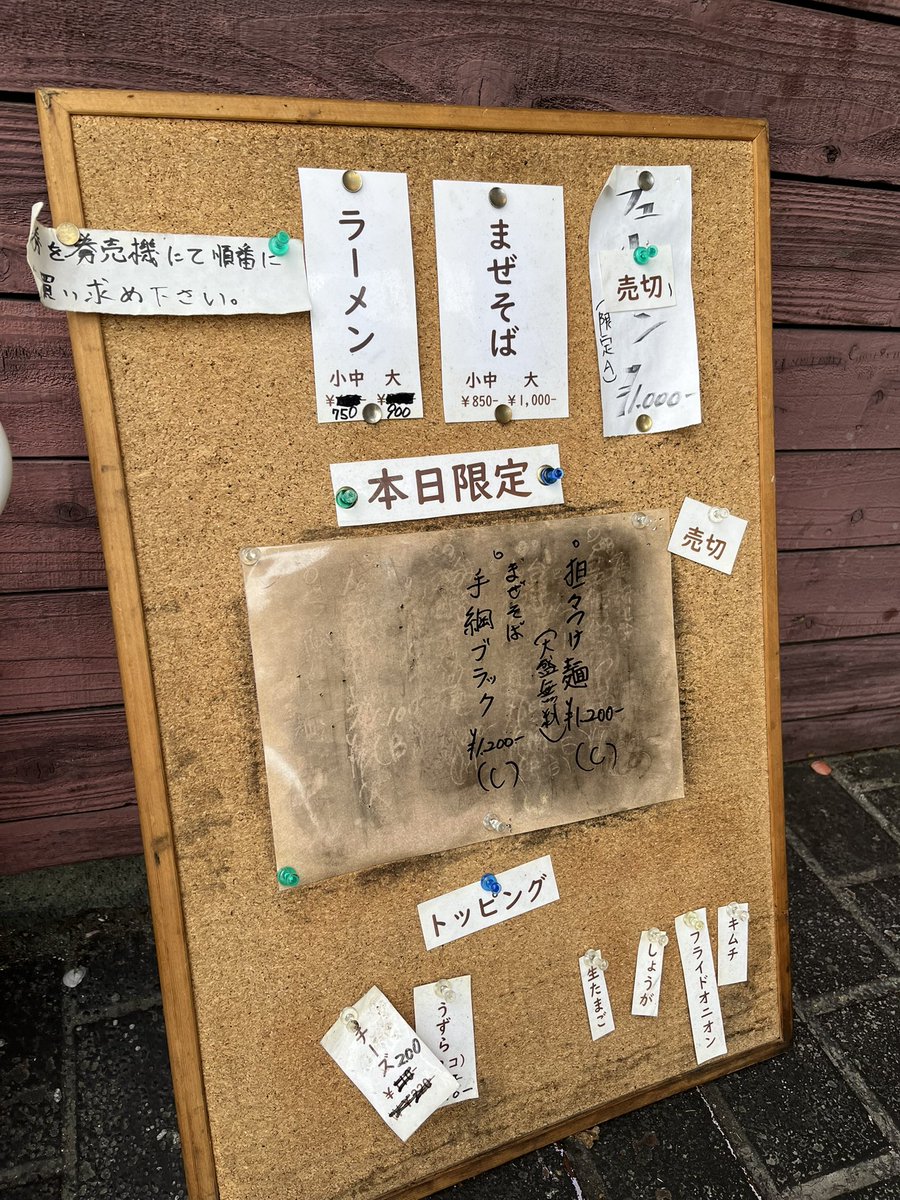 券売機にて順番に
買い求め下さい。
ラーメン
小中 大
750 900
まぜそば
小中 大
¥850- ¥1,000-
売切
(限定A)
¥1.000-
本日限定
売切
担々つけ麺 ¥1.200- (C)
(大盛無料)
まぜそば
手綱ブラック ¥1.200- (C)
トッピング
チーズ 200
うずら
生たまご
しょうが
フライドオニオン
キムチ